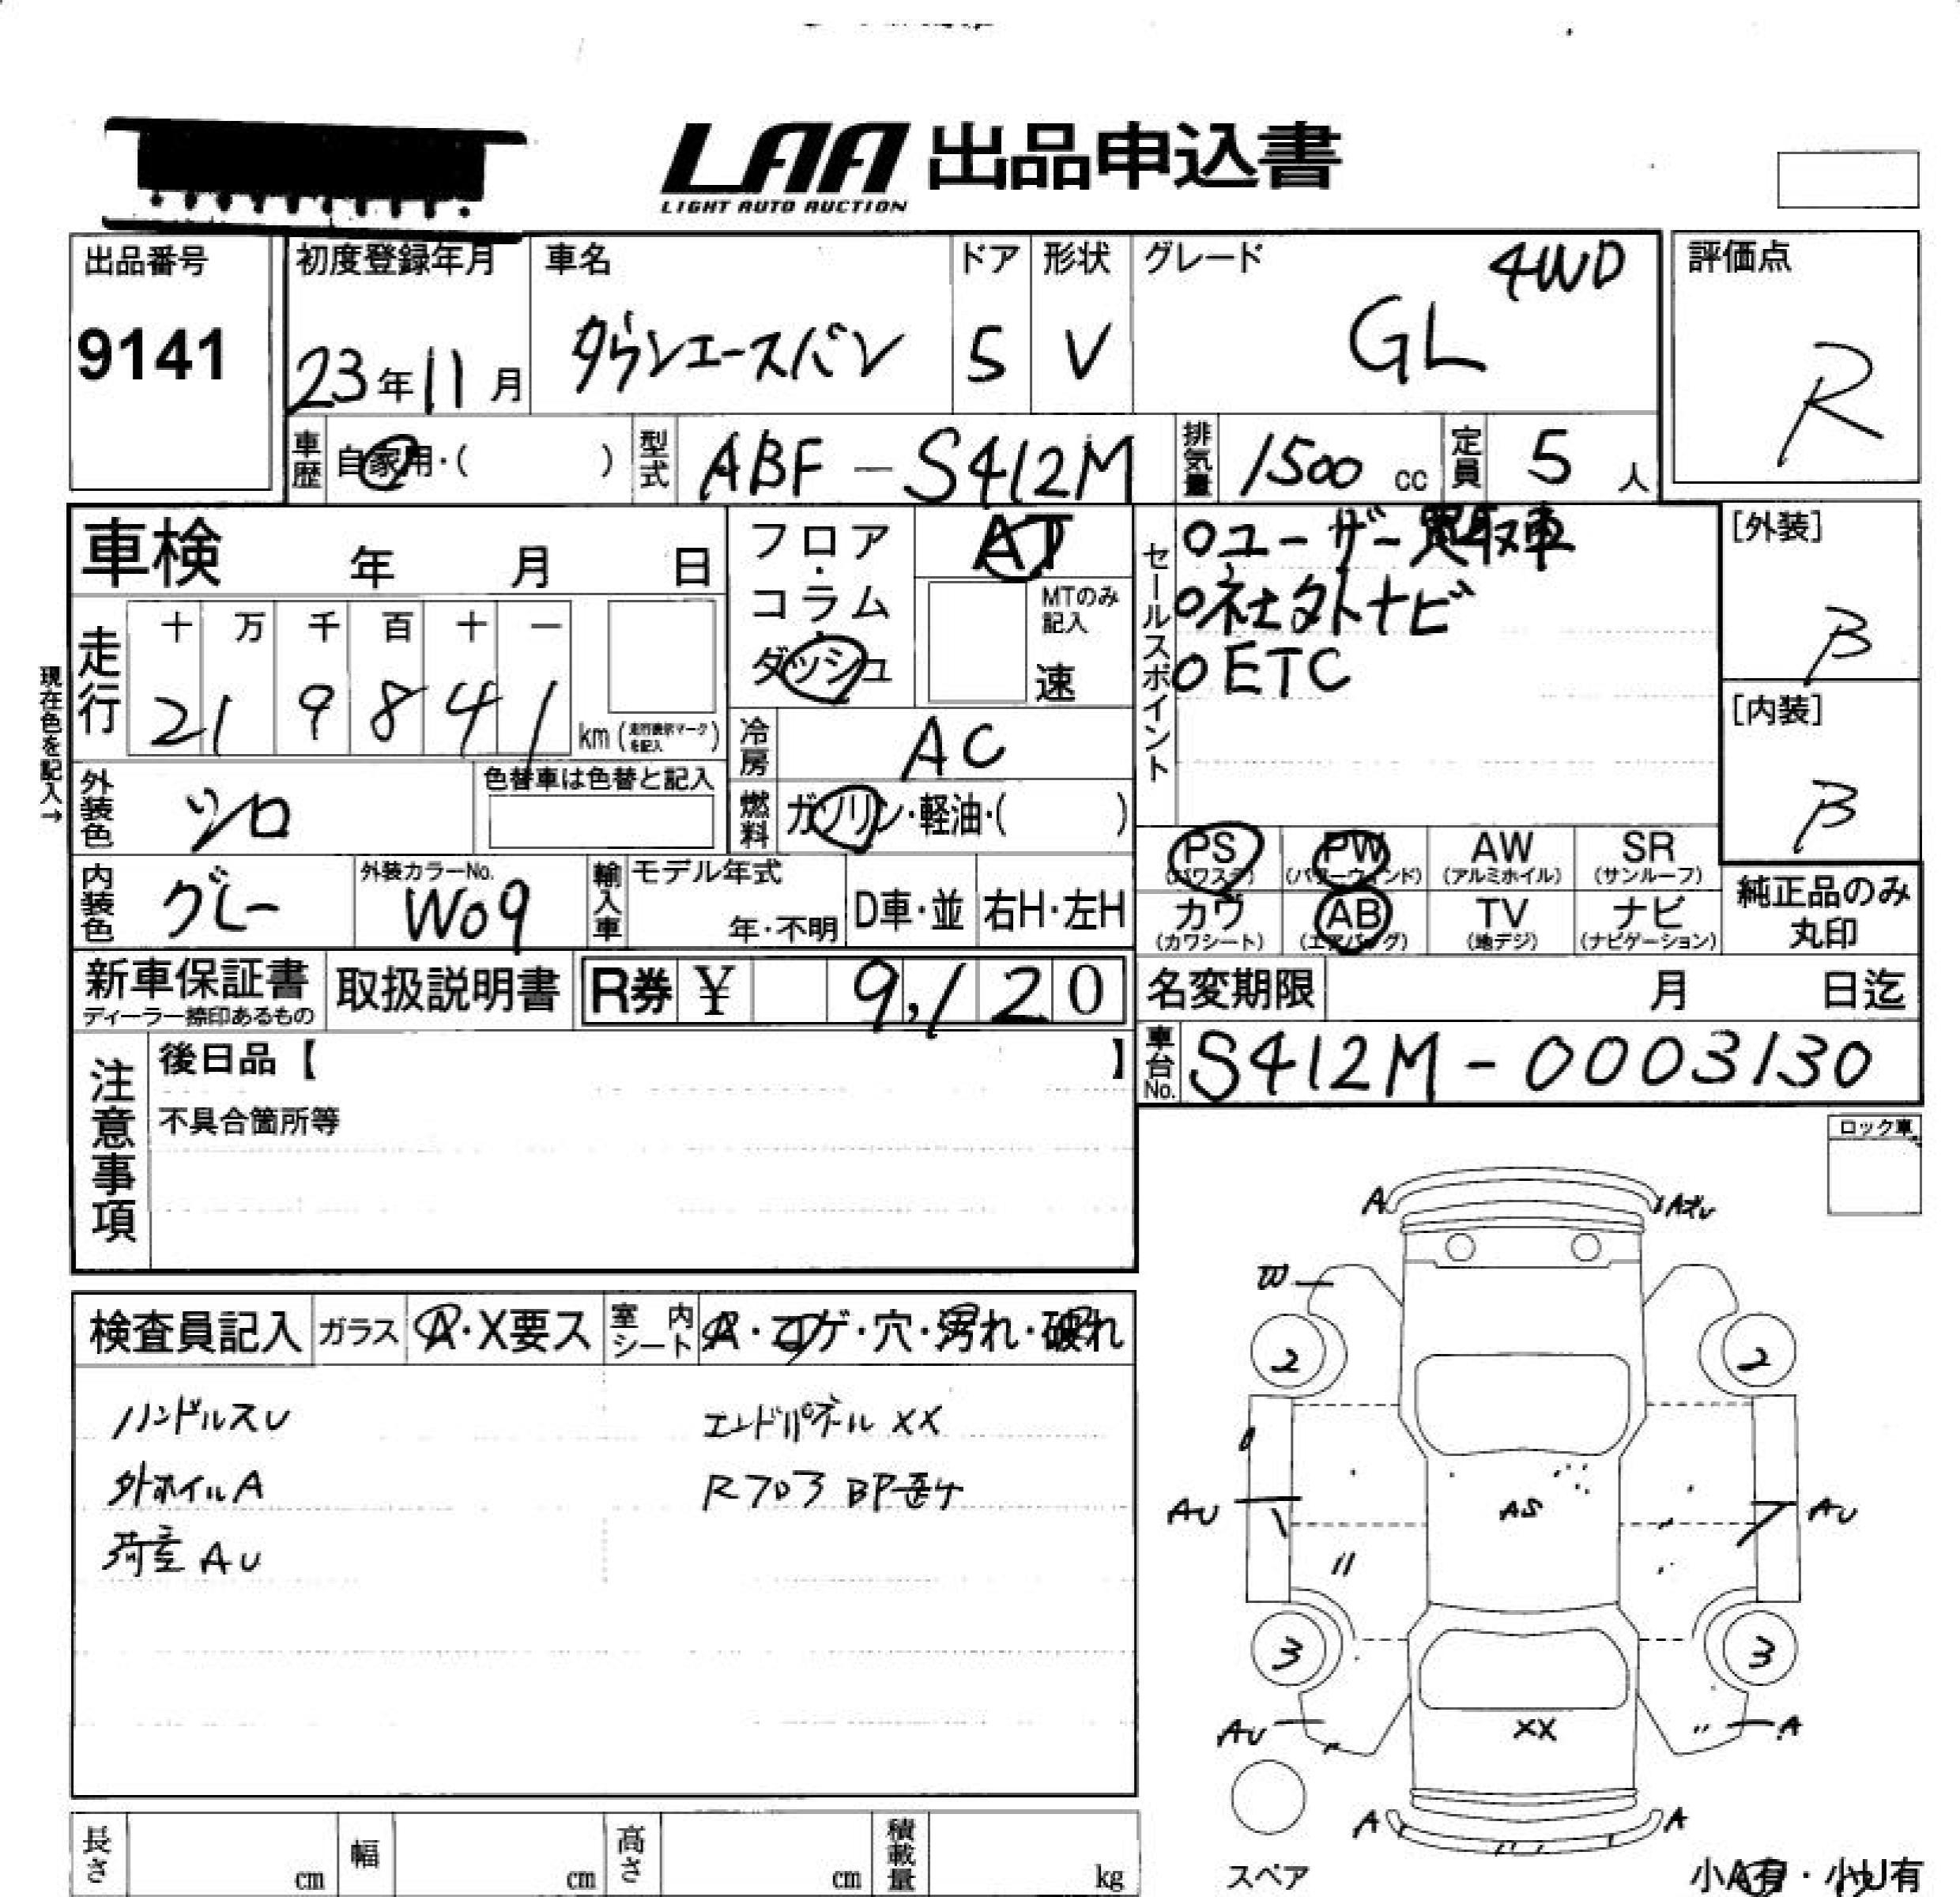 LAA 出品申込書
LIGHT AUTO AUCTION
出品番号 初度登録年月 車名 ドア 形状 グレード 4WD 評価点
9141 23年11月 タウンエースバン 5 V GL R
車歴 自家用・( ) 型式 ABF-S412M 排気量 1500 cc 定員 5 人
車検 年 月 日
フロア・コラム・ダッシュ AT
MTのみ記入 速
セールスポイント
○ユーザー買取車
○社外ナビ
○ETC
[外装]
B
[内装]
B
現在色を記入→
走行 十 万 千 百 十 一
2 1 9 8 4 1 km
冷房 AC
外装色 シロ 色替車は色替と記入
燃料 ガソリン・軽油・( )
PS (パワステ) PW (パワーウィンド) AW (アルミホイル) SR (サンルーフ)
カワ (カワシート) AB (エアバッグ) TV (地デジ) ナビ (ナビゲーション)
純正品のみ丸印
内装色 グレー 外装カラーNo. W09 輸入車 モデル年式 年・不明 D車・並 右H・左H
新車保証書 ディーラー捺印あるもの 取扱説明書 R券 ¥ 9,120
名変期限 月 日迄
車台No. S412M-0003130
注意事項
後日品【 】
不具合箇所等
ロック車
検査員記入 ガラス A・X要ス 室内シート A・コゲ・穴・汚れ・破れ
ハンドルスレ エンドパネル XX
外ホイルA
荷室 AU
A
W
2 2
AU AS AU
3 3
AU XX A
A A
スペア
小A有・小U有
長さ cm 幅 cm 高さ cm 積載量 kg